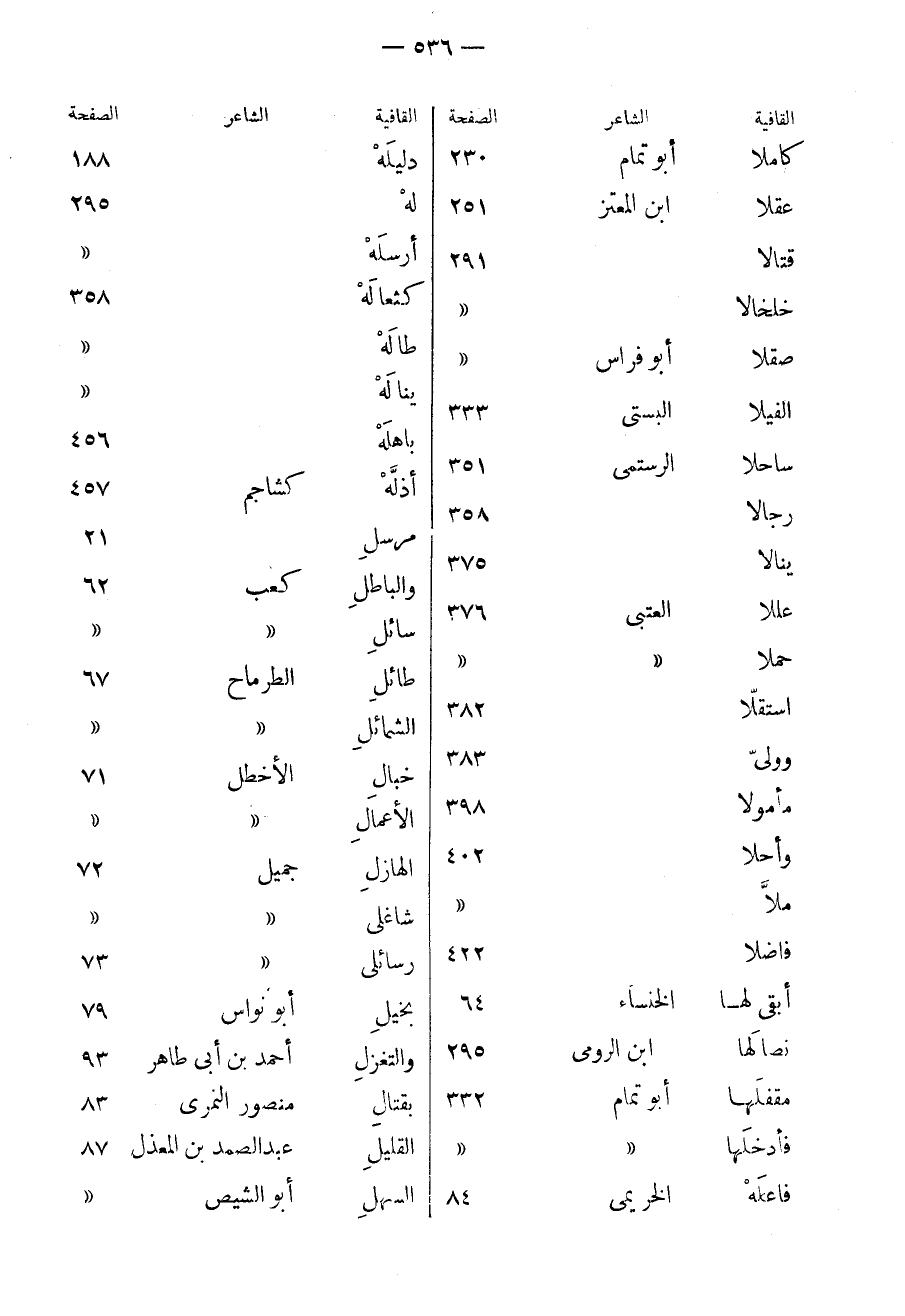 — ٥٣٦ —
القافية الشاعر الصفحة
كاملا أبو تمام ٢٣٠
عقلا ابن المعتز ٢٥١
قتالا ٢٩١
خلخالا »
صقلا أبو فراس »
الفيلا البستى ٣٣٣
ساحلا الرستمى ٣٥١
رجالا ٣٥٨
ينالا ٣٧٥
عللا العتبى ٣٧٦
حملا » »
استقلّا ٣٨٢
وولىّ ٣٨٣
مأمولا ٣٩٨
وأحلا ٤٠٢
ملاَّ »
فاضلا ٤٢٢
أبقى لهـا الخنساء ٦٤
نصالَها ابن الرومى ٢٩٥
مقفلَهـا أبو تمام ٣٣٢
فأدخلَها » »
فاعلَهْ الخريمى ٨٤
القافية الشاعر الصفحة
دليلَهْ ١٨٨
لهْ ٢٩٥
أرسلَهْ »
كثعالَهْ ٣٥٨
طالَهْ »
ينالَهْ »
باهلَهْ ٤٥٦
أذلَّهْ كشاجم ٤٥٧
مرسلِ ٢١
والباطلِ كعب ٦٢
سائلِ » »
طائلِ الطرماح ٦٧
الشمائلِ » »
خبالِ الأخطل ٧١
الأعمالِ » »
الهازلِ جميل ٧٢
شاغلى » »
رسائلى » ٧٣
بخيلِ أبو نواس ٧٩
والتغزلِ أحمد بن أبى طاهر ٩٣
بقتالِ منصور النمرى ٨٣
القليلِ عبدالصمد بن المعذل ٨٧
السهلِ أبو الشيص »